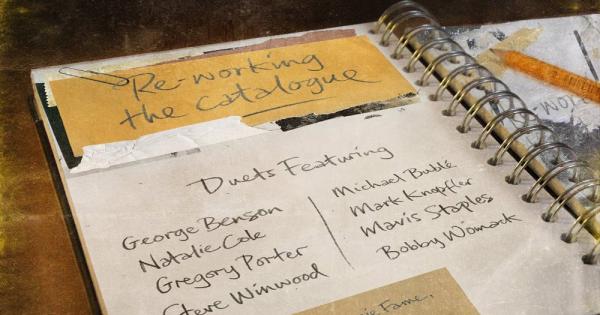 Re-working
the Catalogue
Duets Featuring
George Benson
Natalie Cole
Gregory Porter
Steve Winwood
Michael Bublé
Mark Knopfler
Mavis Staples
Bobby Womack
Fame,